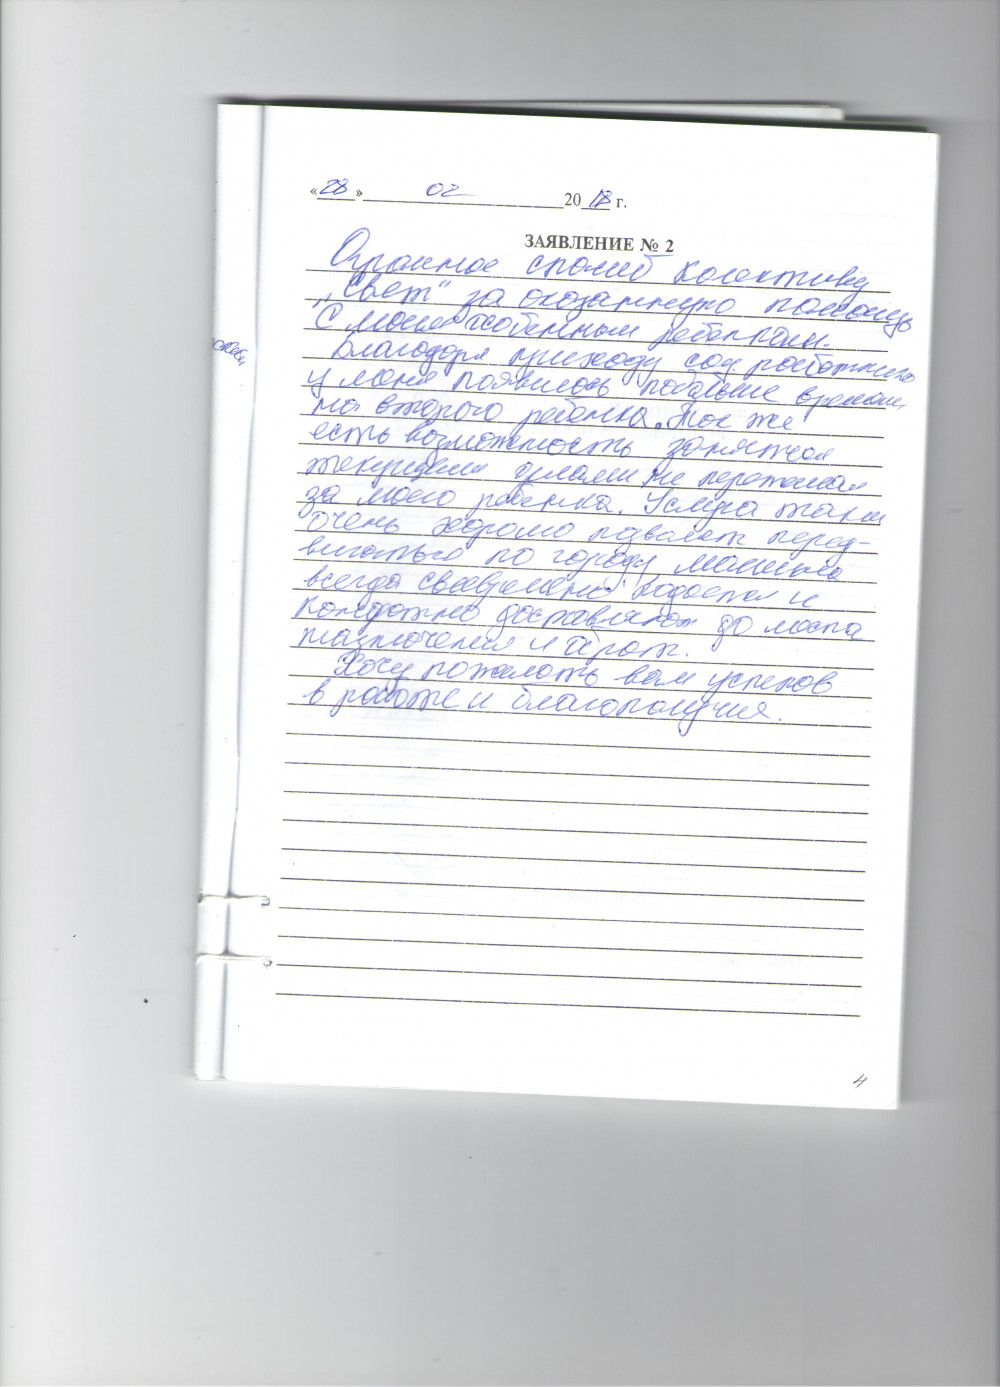 «28» 02 2018 г.
ЗАЯВЛЕНИЕ № 2
Огромное спасиб колективу
"Свет" за оказанную помощь
с моим особенным ребенком.
Благодаря приходу соц. работника
у меня появилось побольше времени
на второго ребенка. Так же
есть возможность заняться
текущими делами не переживая
за моего ребенка. Услуга такси
очень хорошо пзваляет перед-
вигаться по городу, машина
всегда своевремено и
доставляют до места
назначения и обратн.
Хочу пожелать вам успехов
в работе и благополучия.
4